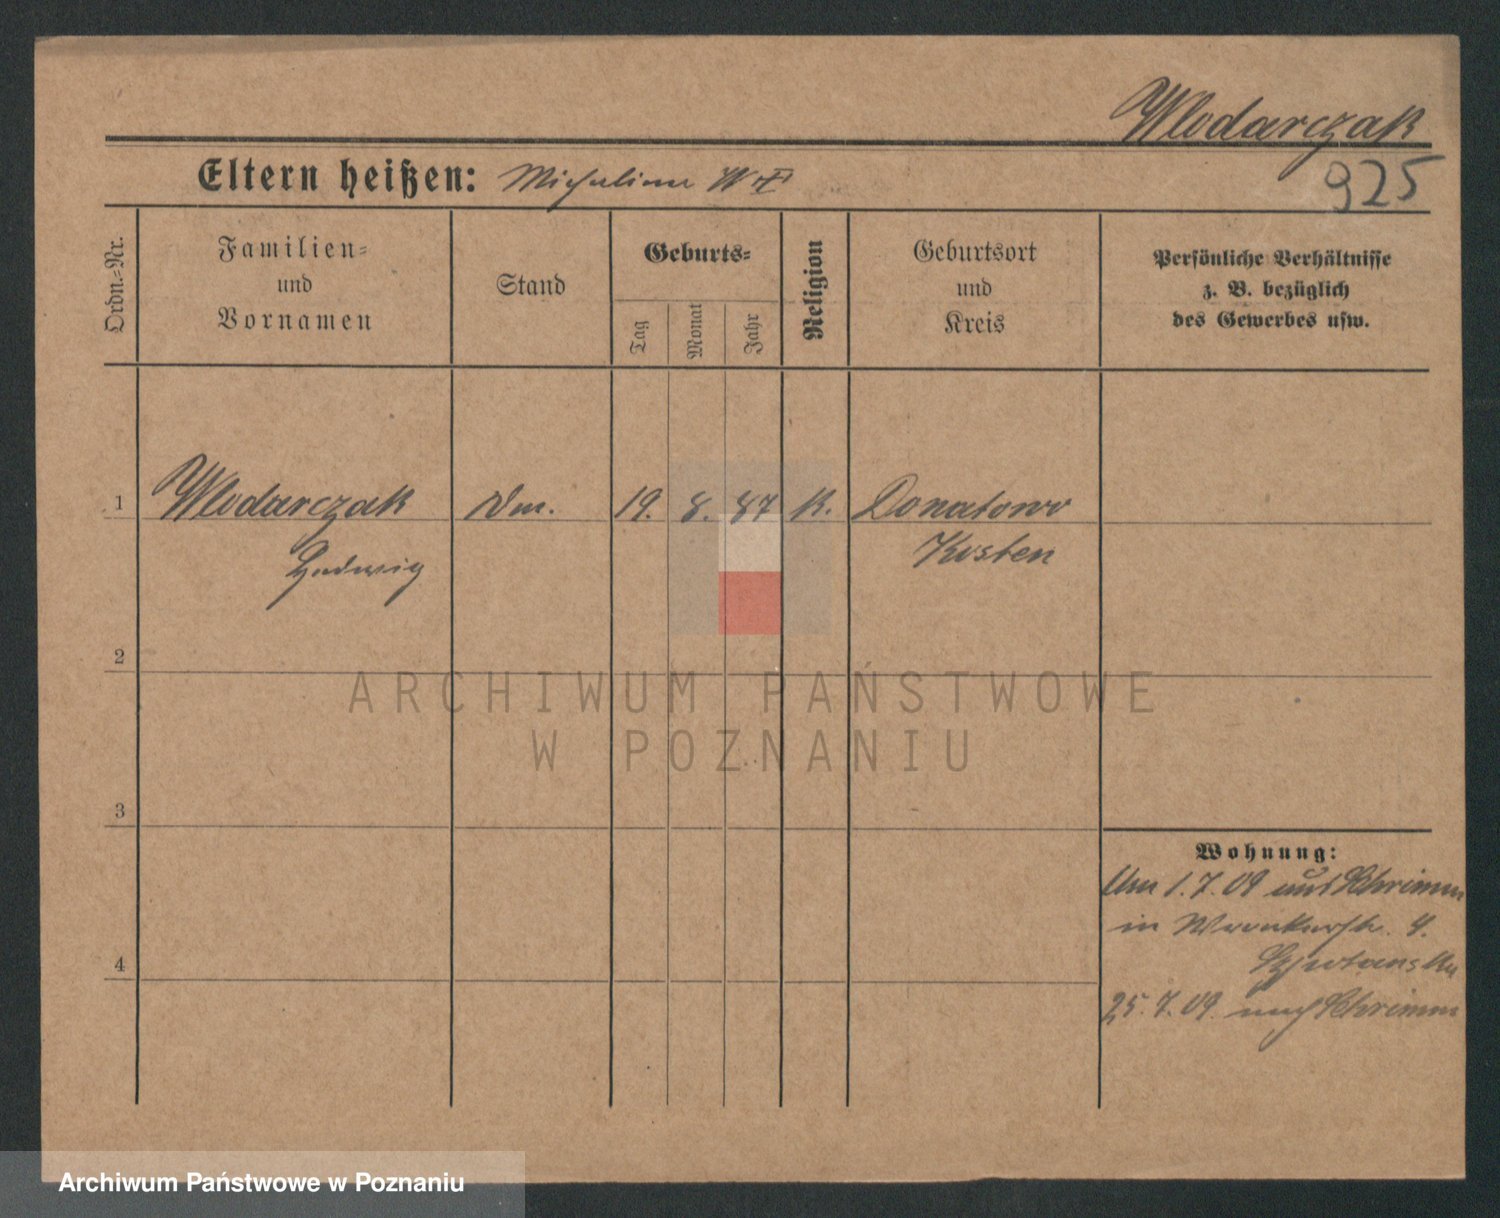 Wlodarczak
Eltern heißen: Michalina
925
Ordn.-Nr.
Familien-
und
Vornamen
Stand
Geburts-
Tag
Monat
Jahr
Religion
Geburtsort
und
Kreis
Persönliche Verhältnisse
z. B. bezüglich
des Gewerbes usw.
1 Wlodarczak 19. 8. 87 K. Donatowo
Ludwig Kosten
2
3
4
Wohnung:
1.7.09 aus Schrimm
in 4.
25.7.09. nach Schrimm
ARCHIWUM PAŃSTWOWE
W POZNANIU
Archiwum Państwowe w Poznaniu